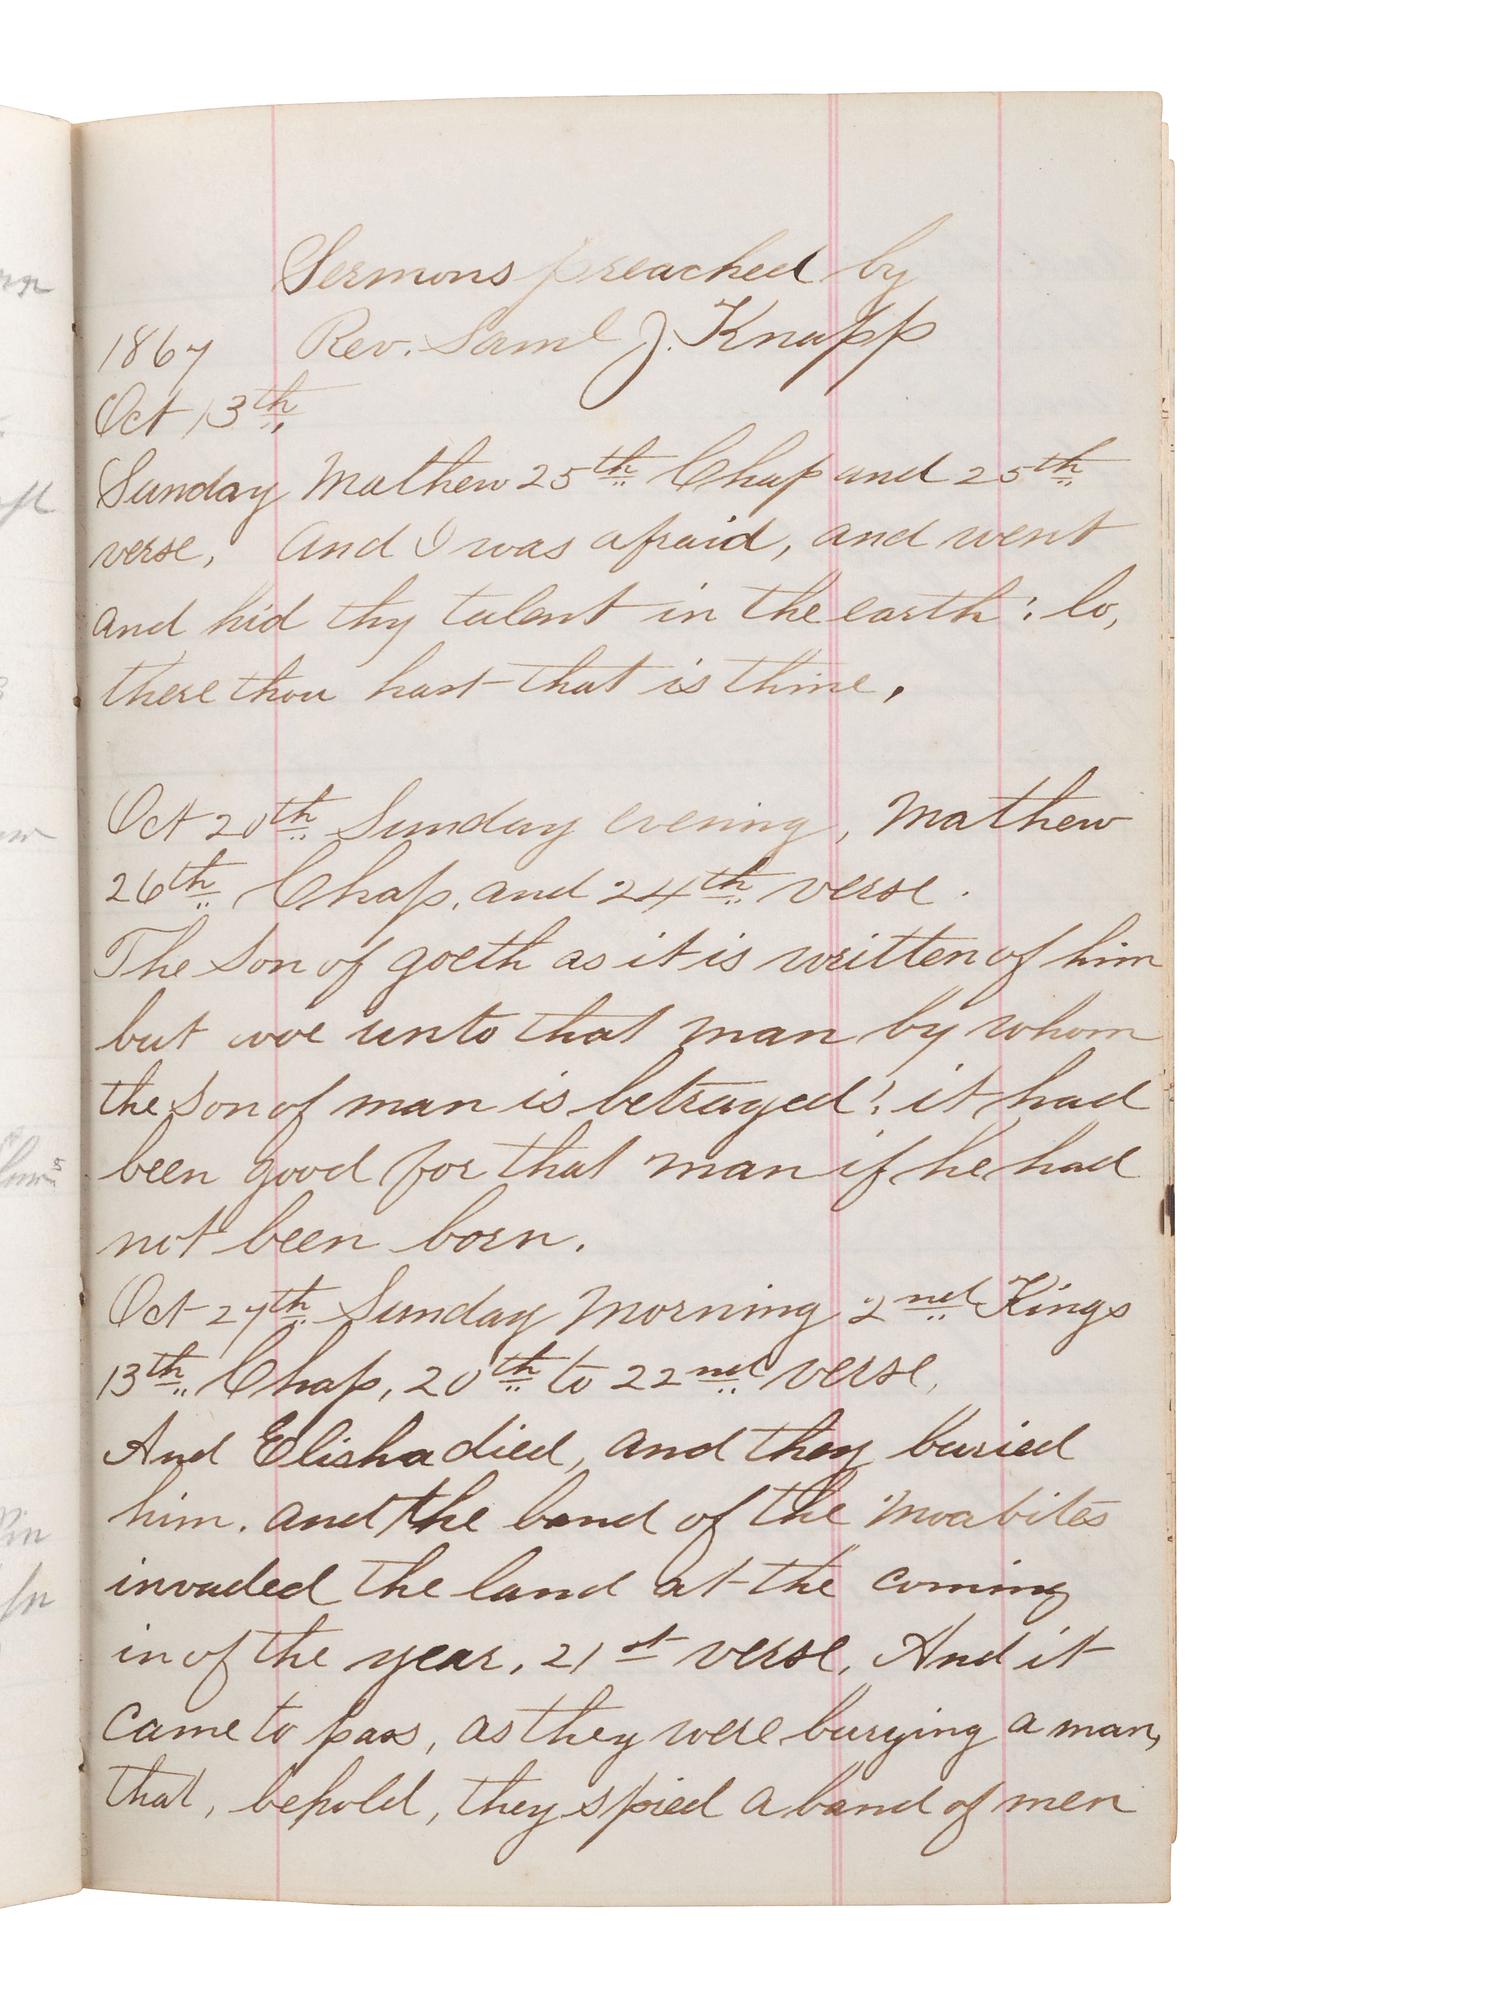 Sermons preached by
1867 Rev. Saml J. Knapp
Oct 13th,
Sunday Mathew 25th Chap and 25th
verse, And I was afraid, and went
and hid thy talent in the earth: lo,
there thou hast that is thine.
Oct 20th Sunday evening, Mathew
26th Chap, and 24th verse.
The Son of goeth as it is written of him
but woe unto that man by whom
the Son of man is betrayed: it had
been good for that man if he had
not been born.
Oct 27th Sunday Morning 2nd Kings
13th Chap, 20th to 22nd verse,
And Elisha died, and they buried
him. and the band of the Moabites
invaded the land at the coming
in of the year, 21st verse, And it
came to pass, as they were burying a man,
that, behold, they spied a band of men